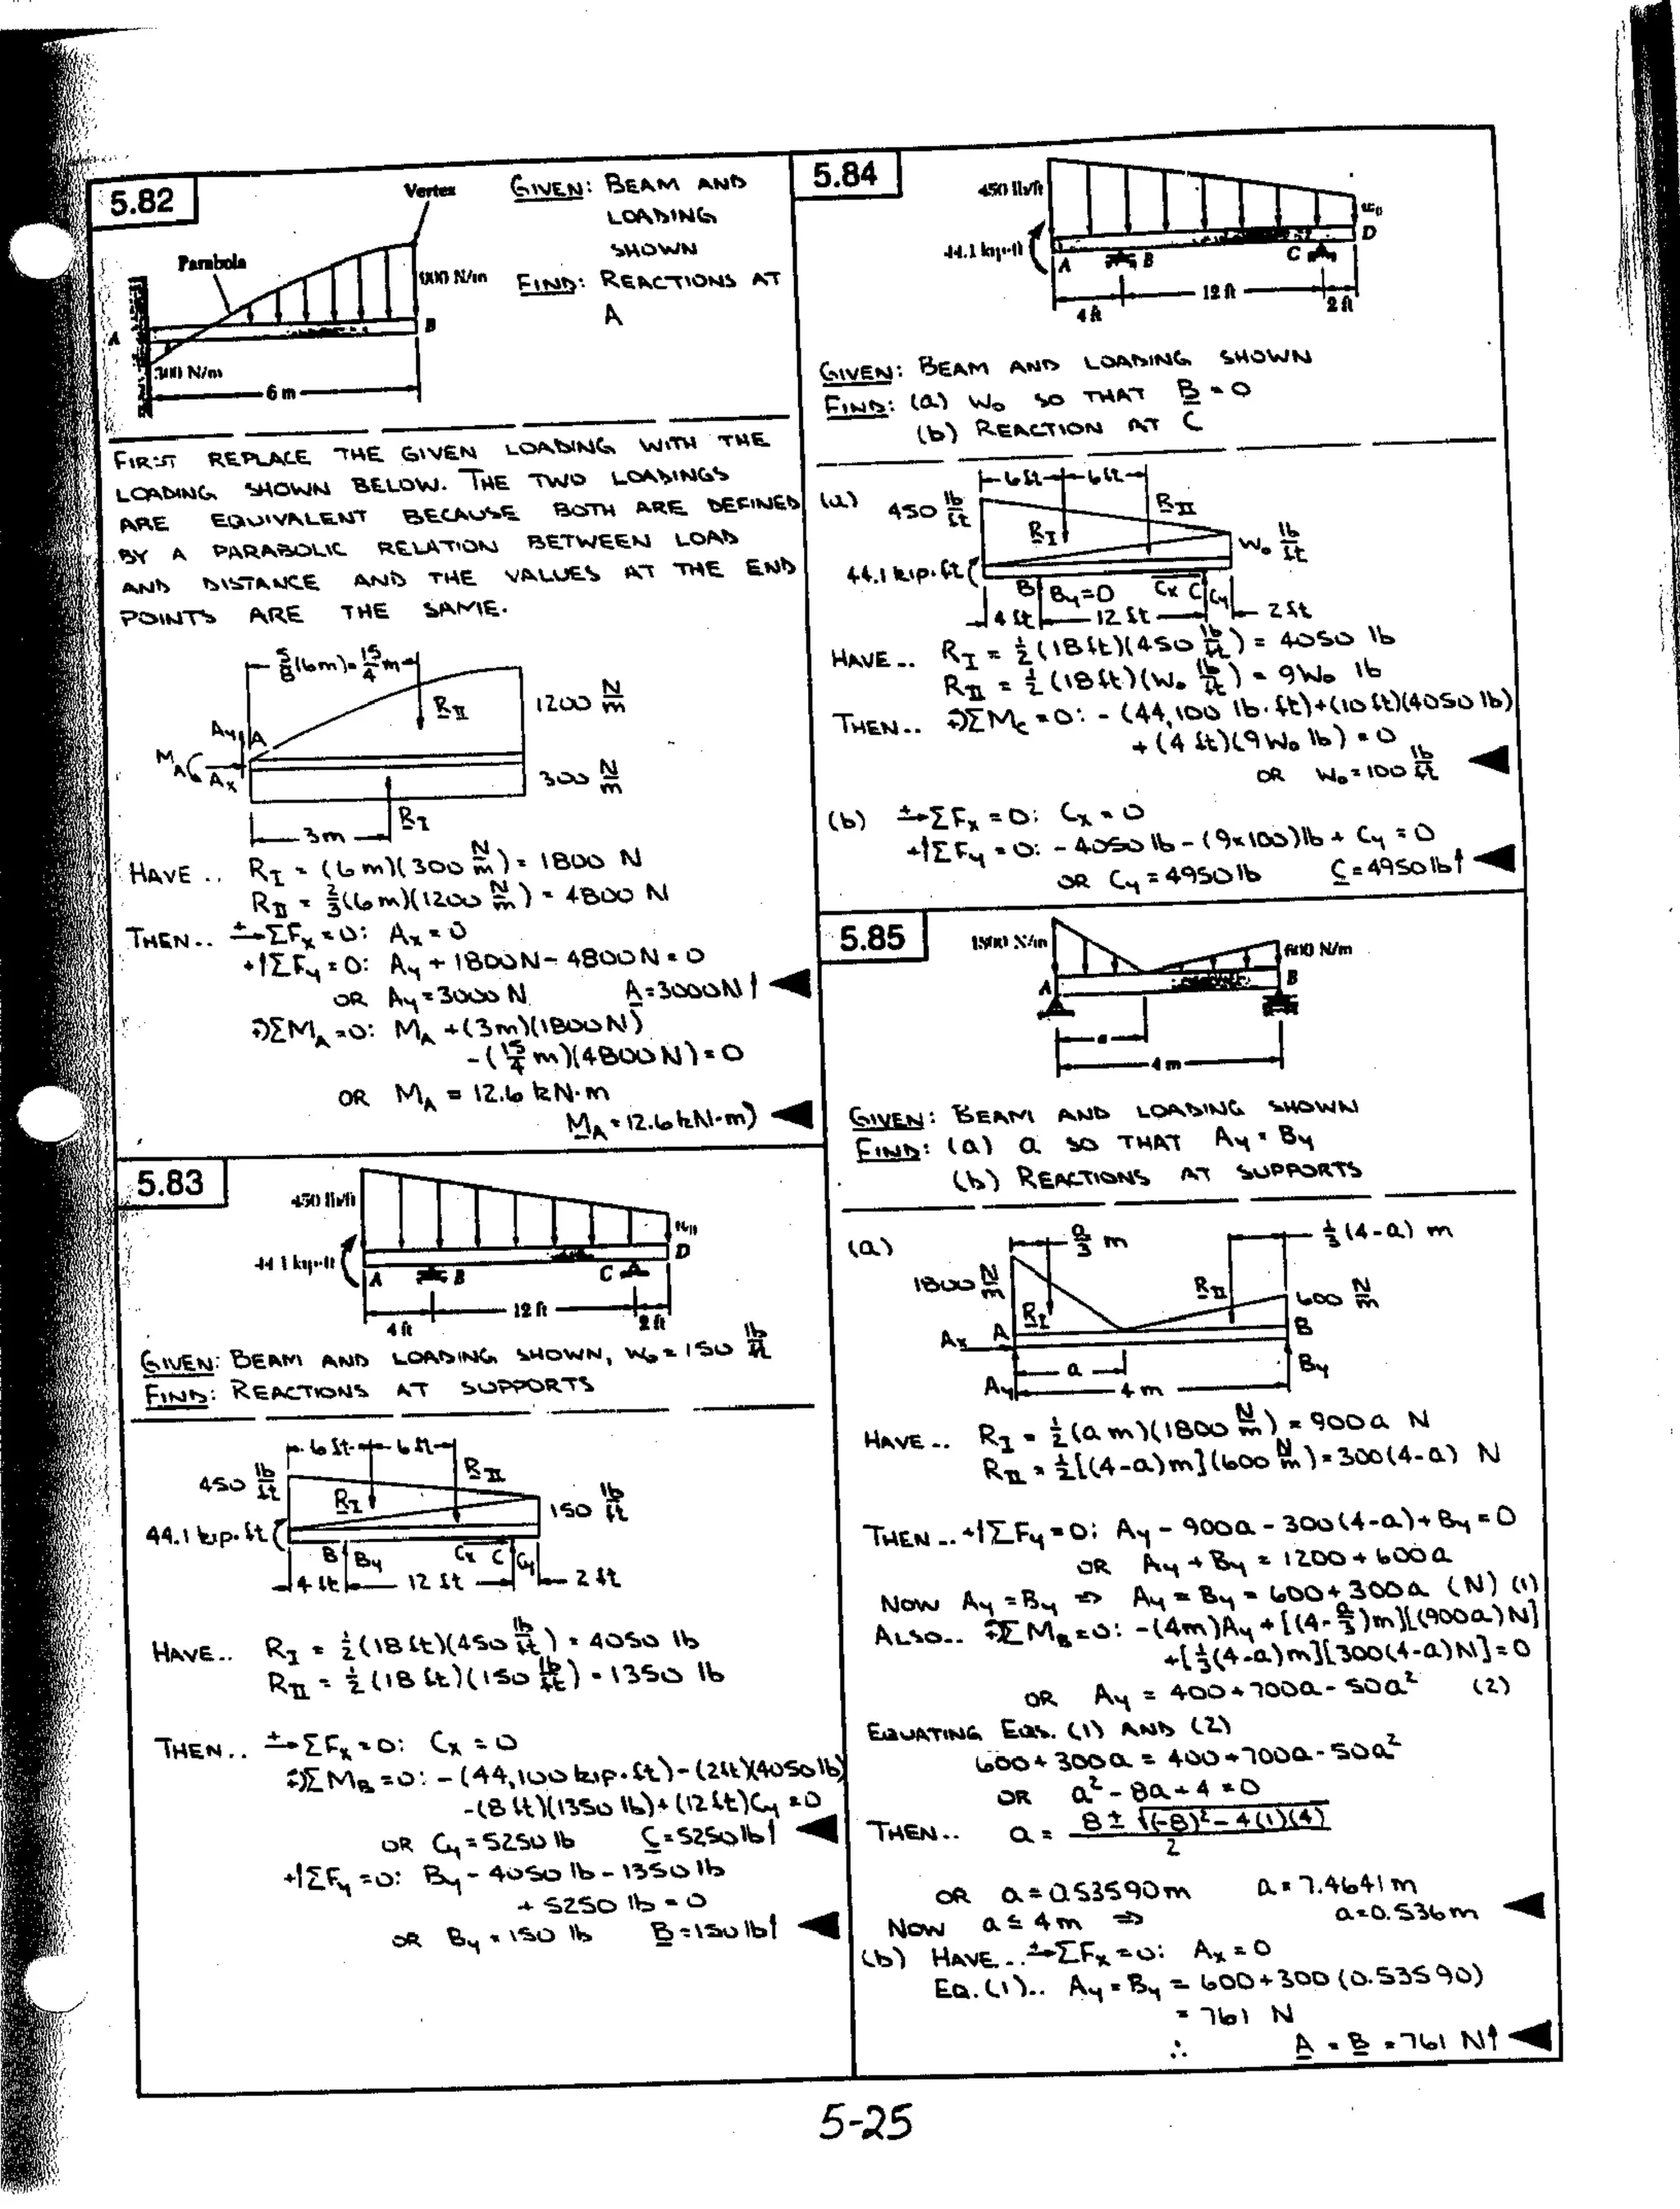 5.82
Vertex
Parabola
900 N/m
A
B
300 N/m
6 m
GIVEN: BEAM AND
LOADING
SHOWN
FIND: REACTIONS AT
A
FIRST REPLACE THE GIVEN LOADING WITH THE
LOADING SHOWN BELOW. THE TWO LOADINGS
ARE EQUIVALENT BECAUSE BOTH ARE DEFINED
BY A PARABOLIC RELATION BETWEEN LOAD
AND DISTANCE AND THE VALUES AT THE END
POINTS ARE THE SAME.
5/8(6m)=15/4 m
R_II
1200 N/m
A_y A
M_A
A_x
300 N/m
3m
R_I
HAVE .. R_I = (6m)(300 N/m) = 1800 N
R_II = 2/3(6m)(1200 N/m) = 4800 N
THEN.. ΣF_x=0: A_x=0
+↑ΣF_y=0: A_y + 1800N - 4800N = 0
OR A_y=3000 N A=3000N↑
ΣM_A=0: M_A +(3m)(1800N)
-(15/4 m)(4800N)=0
OR M_A = 12.6 kN·m
M_A=12.6kN·m)
5.83
450 lb/ft
w0
44.1 kip·ft
A B C D
4 ft 12 ft 2 ft
GIVEN: BEAM AND LOADING SHOWN, W0=150 lb/ft
FIND: REACTIONS AT SUPPORTS
6ft 6ft
450 lb/ft R_I R_II 150 lb/ft
44.1 kip·ft
B B_y C_x C C_y
4ft 12ft 2ft
HAVE.. R_I = 1/2(18ft)(450 lb/ft) = 4050 lb
R_II = 1/2(18ft)(150 lb/ft) = 1350 lb
THEN.. ΣF_x=0: C_x=0
ΣM_B=0: -(44,100 kip·ft)-(2ft)(4050lb)
-(8ft)(1350 lb)+(12ft)C_y=0
OR C_y=5250 lb C=5250lb↑
+↑ΣF_y=0: B_y - 4050 lb - 1350 lb
+ 5250 lb = 0
OR B_y=150 lb B=150lb↑
5.84
450 lb/ft
w0
44.1 kip·ft
A B C D
4 ft 12 ft 2 ft
GIVEN: BEAM AND LOADING SHOWN
FIND: (a) W0 SO THAT B=0
(b) REACTION AT C
6ft 6ft
(a) 450 lb/ft R_I R_II W0 lb/ft
44.1 kip·ft
B B_y=0 C_x C C_y
4ft 12ft 2ft
HAVE.. R_I = 1/2(18ft)(450 lb/ft) = 4050 lb
R_II = 1/2(18ft)(W0 lb/ft) = 9W0 lb
THEN.. ΣM_C=0: -(44,100 lb·ft)+(10ft)(4050lb)
+(4ft)(9W0 lb)=0
OR W0=100 lb/ft
(b) ΣF_x=0: C_x=0
+↑ΣF_y=0: -4050lb-(9x100)lb+C_y=0
OR C_y=4950lb C=4950lb↑
5.85
1800 N/m
600 N/m
A
B
a
4 m
GIVEN: BEAM AND LOADING SHOWN
FIND: (a) a SO THAT A_y=B_y
(b) REACTIONS AT SUPPORTS
(a) a/3 m 1/3(4-a) m
1800 N/m R_I R_II 600 N/m
A_x A B
a
A_y 4m B_y
HAVE.. R_I = 1/2(a m)(1800 N/m) = 900a N
R_II = 1/2[(4-a)m](600 N/m)=300(4-a) N
THEN.. +↑ΣF_y=0: A_y-900a-300(4-a)+B_y=0
OR A_y+B_y=1200+600a
NOW A_y=B_y ⇒ A_y=B_y=600+300a (N) (1)
ALSO.. ΣM_B=0: -(4m)A_y+[(4-a/3)m][(900a)N]
+[1/3(4-a)m][300(4-a)N]=0
OR A_y=400+700a-50a² (2)
EQUATING EQS. (1) AND (2)
600+300a=400+700a-50a²
OR a²-8a+4=0
THEN.. a = 8±√(-8)²-4(1)(4) / 2
OR a=0.53590m a=7.4641m
NOW a≤4m ⇒ a=0.536m
(b) HAVE.. ΣF_x=0: A_x=0
EQ.(1).. A_y=B_y=600+300(0.53590)
=761 N
∴ A=B=761 N↑
5-25